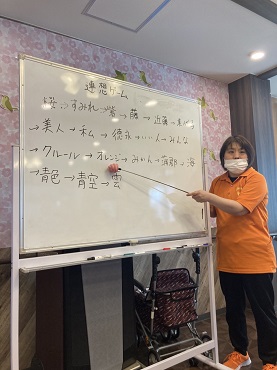 連想ゲーム
桜→すみれ→紫→藤→近藤→
→美人→私→徳永→いい人→みんな
→クルール→オレンジ→みかん→蒲郡→海
→青色→青空→雲